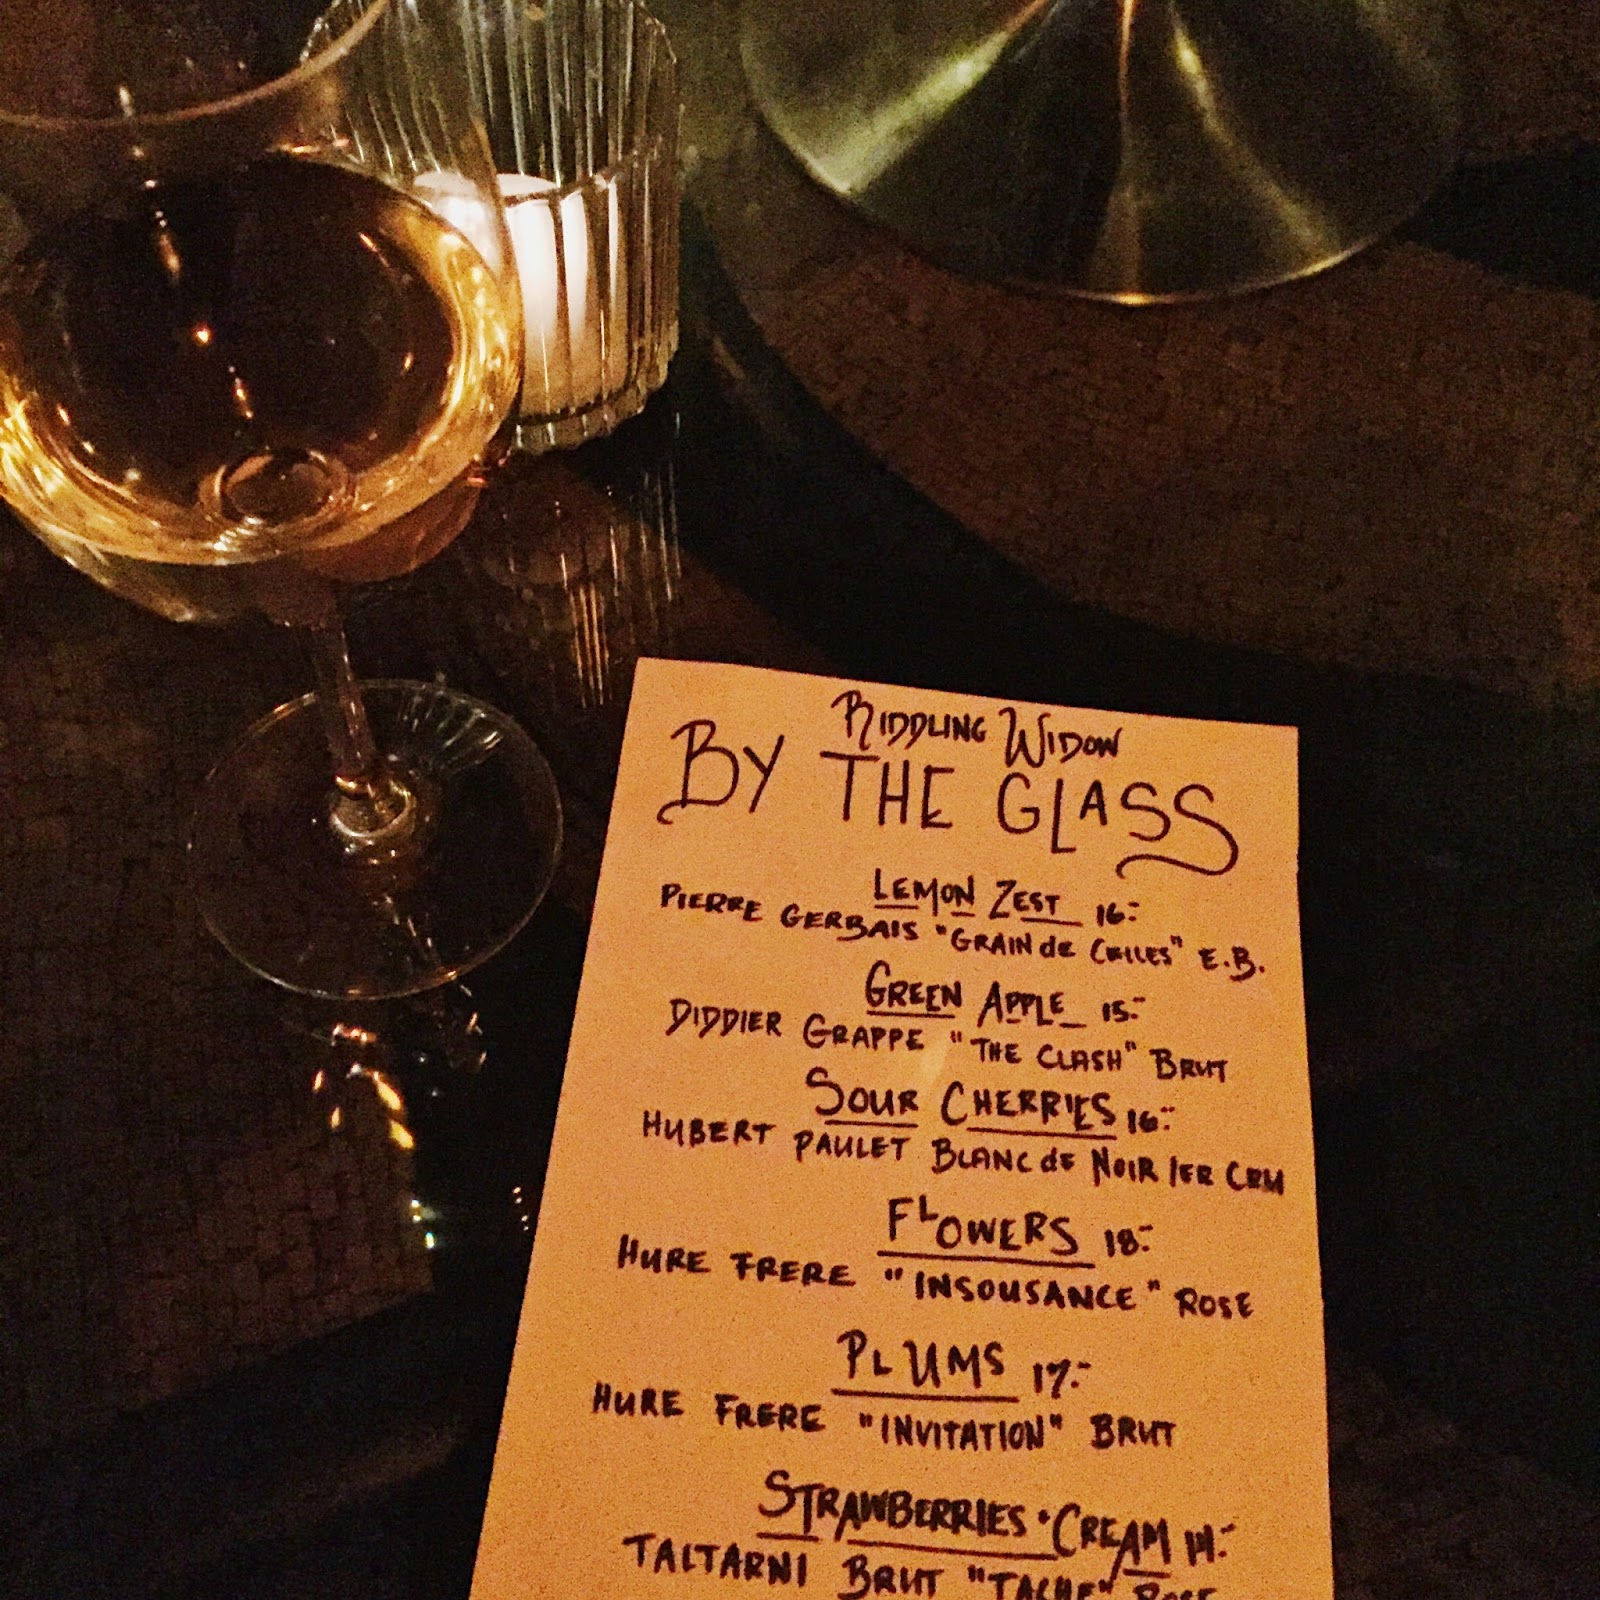 RIDDLING WIDOW
BY THE GLASS
LEMON ZEST 16.-
PIERRE GERBAIS "GRAIN de CELLES" E.B.
GREEN APPLE 15.-
DIDDIER GRAPPE "THE CLASH" BRUT
SOUR CHERRIES 16.-
HUBERT PAULET BLANC de NOIR 1ER CRU
FLOWERS 18.-
HURE FRERE "INSOUSANCE" ROSE
PLUMS 17.-
HURE FRERE "INVITATION" BRUT
STRAWBERRIES • CREAM 14.-
TALTARNI BRUT "TACHE" ROSE